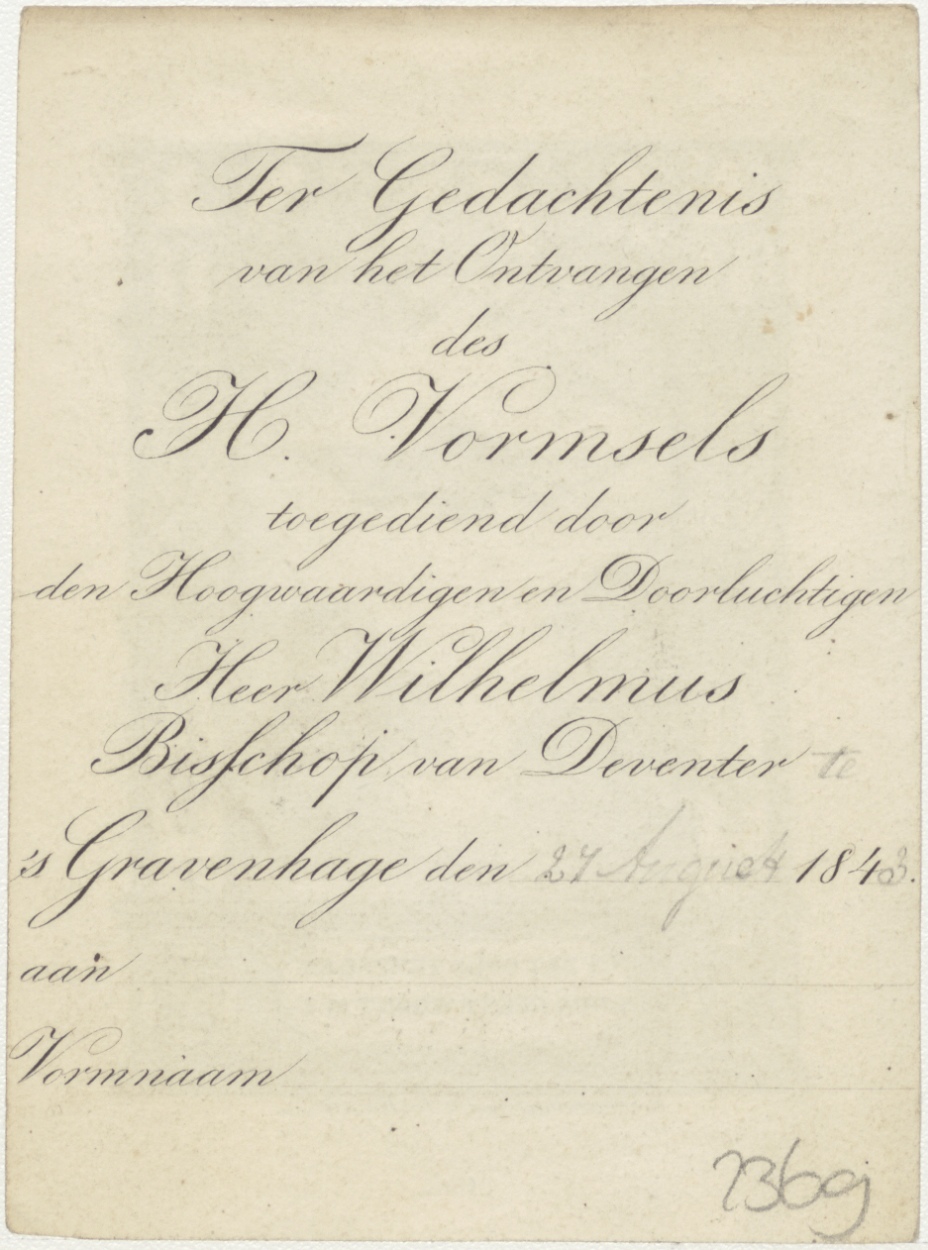 Ter Gedachtenis
van het Ontvangen
des
H. Vormsels
toegediend door
den Hoogwaardigen en Doorluchtigen
Heer Wilhelmus
Bisschop van Deventer te
's Gravenhage den 27 August 1843.
aan
Vormnaam
2369